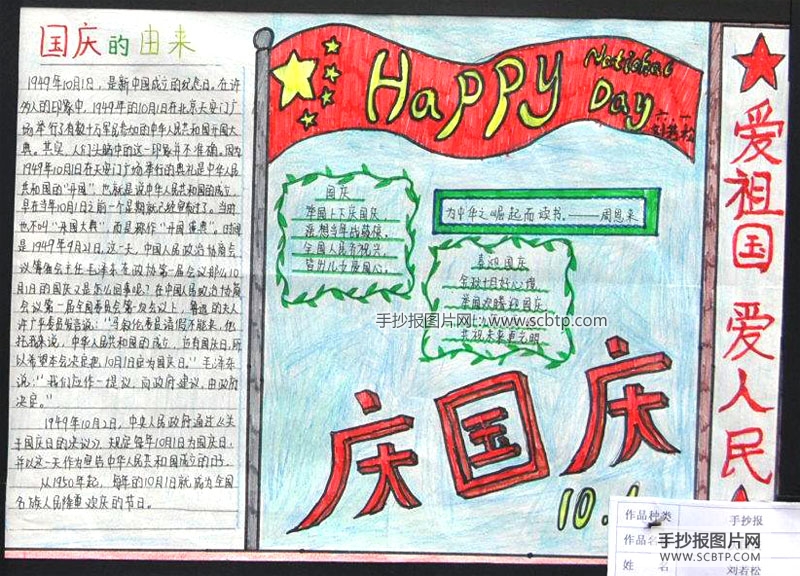 国庆的由来
1949年10月1日,是新中国成立的纪念日。在许
多人的印象中,1949年的10月1日在北京天安门广
场举行了有数十万军民参加的中华人民共和国开国大
典。其实,人们头脑中的这一印象并不准确。因为
1949年10月1日在天安门广场举行的典礼是中华人民
共和国的
早在当年10月1日之前一个星期就已经宣布过了。当时
也不叫"开国大典",而是称作
是1949年9月21日,这一天,中国人民政治协商会
议筹备会主任毛泽东在政协第一届会议
1日的国庆又是怎么回事呢?在中国人民政治协商
会议第一届全国委员会第一次会议上,鲁迅的夫人
许广平委员发言说:"马叙伦委员请假不能来,他
托我来说,中华人民共和国的成立,应有国庆日,所
以希望本会决定把10月1日定为国庆日。"毛泽东
说:"我们应作一提议,向政府建议,由政府
决定。"
1949年10月2日,中央人民政府通过《关
于国庆日的决议》,规定每年10月1日为国庆日,
并以这一天作为宣告中华人民共和国成立的日子。
从1950年起,每年的10月1日就成为全国
各族人民隆重欢庆的节日。
HaPPy
National
Day
六.一
刘若松
国庆
举国上下庆国庆,
全国人民齐祝兴,
为中华之崛起而读书。——周恩来
喜迎国庆
金秋十月好心境
举国欢腾迎国庆
共祝未来更光明
手抄报图片网:www.scbtp.com
庆国庆
10.1
爱祖国 爱人民
作品种类 手抄报
作品名
手抄报图片网
WWW.SCBTP.COM
姓 名 刘若松